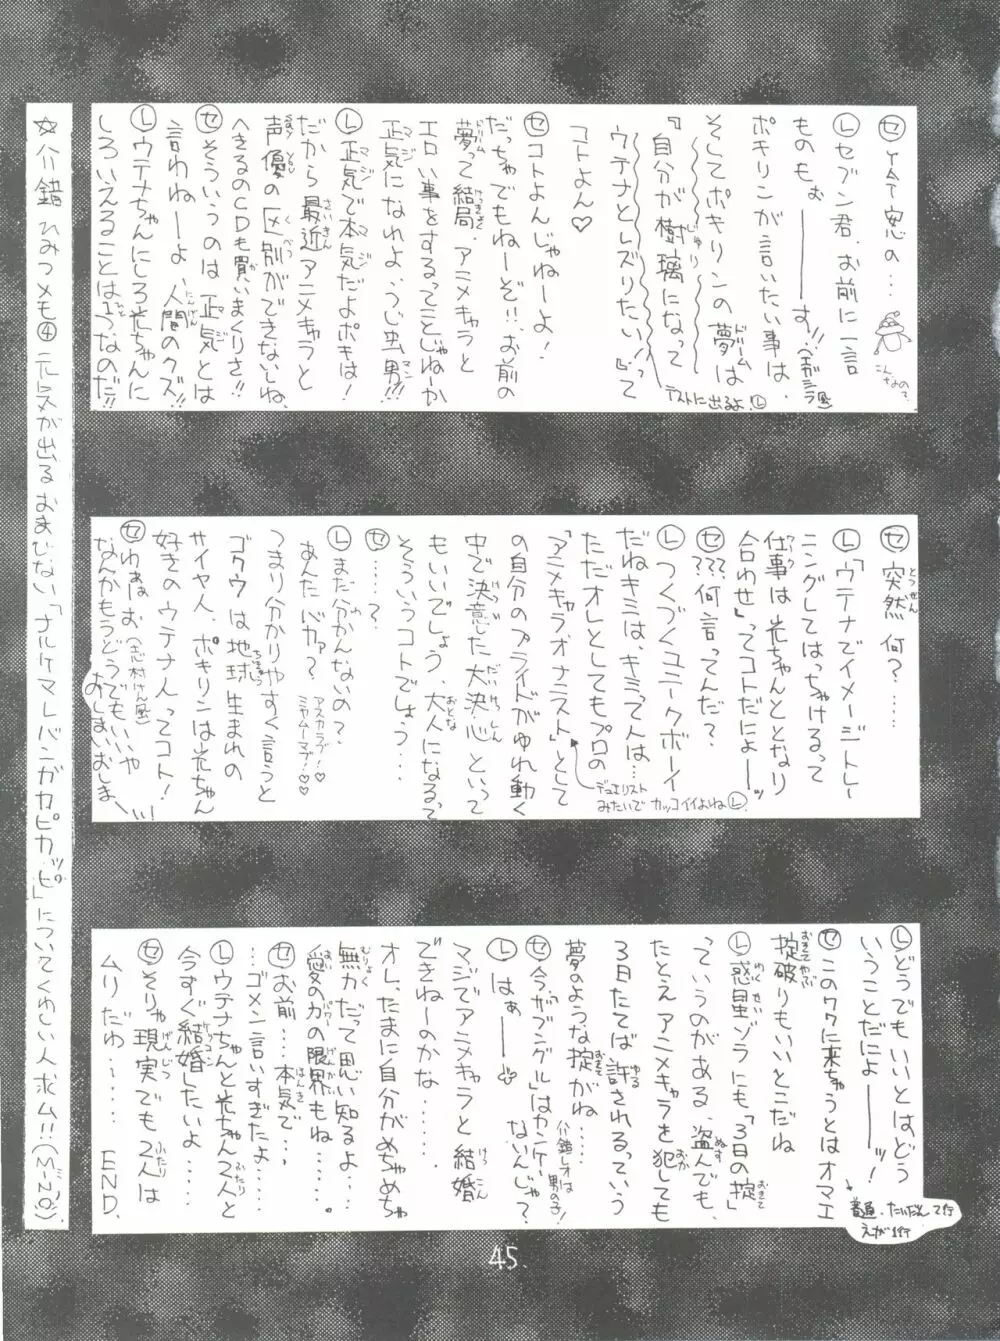 セ YAT安心の…
こんなので
Lセブン君、お前に一言
ものもぉ━━━す!!
ポキリンが言いたい事は、
そしてポキリンの夢は
『自分が樹璃になって
ウテナとレズりたい!!』って
テストに出るよ!L
コトよん♡
セコトよんじゃねーよ!
だっちゃでもねーぞ!!、お前の
夢って結局、アニメキャラと
エロい事をするってことじゃねーか
正気になれよ、うじ虫男!!!
L正気で本気だよポキは!
だから最近アニメキャラと
声優の区別ができないしね、
へきるのCDも買いまくりさ!!
セそういうのは正気とは
言わねーよ、人間のクズ!!
Lウテナちゃんにしろ光ちゃんに
しろいえることは1つなのだ!!
セ突然何?……
L「ウテナでイメージトレー
ニングしてはっちゃけるって
仕事は光ちゃんととなり
合わせ」ってコトだにょ━ッ
セ???何言ってんだ?
Lつくづくユニークボーイ
だねキミは、キミって人は…
ただオレとしてもプロの
「アニメキャラオナニスト」として
デュエリスト
みたいでカッコイイよねL
の自分のプライドがゆれ動く
中で決意した大決心といって
もいいでしょう、大人になるって
そういうコトでしょう…
セ……?
Lまだ分かんないの?
あんたバカァ?
アスカラブ!♡
ミヤムーマブ!♡♡
つまり分かりやすく言うと
ゴクウは地球生まれの
サイヤ人、ポキリンは光ちゃん
好きのウテナ人ってコト!
セわぁはぉ(志村けん風)
なんかもうどうでもいいや
おしまいおしま━い!
Lどうでもいいとはどう
いうことだにょ━━ッ!
セこのワクに来ちゃうとはオマエ
普通、たいだんって行
えが1行
掟破りもいいとこだね
L惑星ゾラにも「3日の掟」
っていうのがある、盗んでも、
たとえアニメキャラを犯しても
3日たてば許されるっていう
夢のような掟がね……
介錯レオは
男の子!
セ今、ザブングルはカンケー
ないんじゃ?
Lはぁ━━
マジでアニメキャラと結婚
できねーのかな……
オレ、たまに自分がめちゃめちゃ
無力だって思い知るよ……
愛の力の限界もね……。
セお前……本気で…、
…ゴメン言いすぎたよ……
Lウテナちゃんと光ちゃん2人と
今すぐ結婚したいよ……
セそりゃ現実でも2人は
ムリだわ…… END.
☆介錯ひみつメモ④元気が出るおまじない「ナルケマレバンガカピカッピ」についてくわしい人求ム!!(MINO).
45.